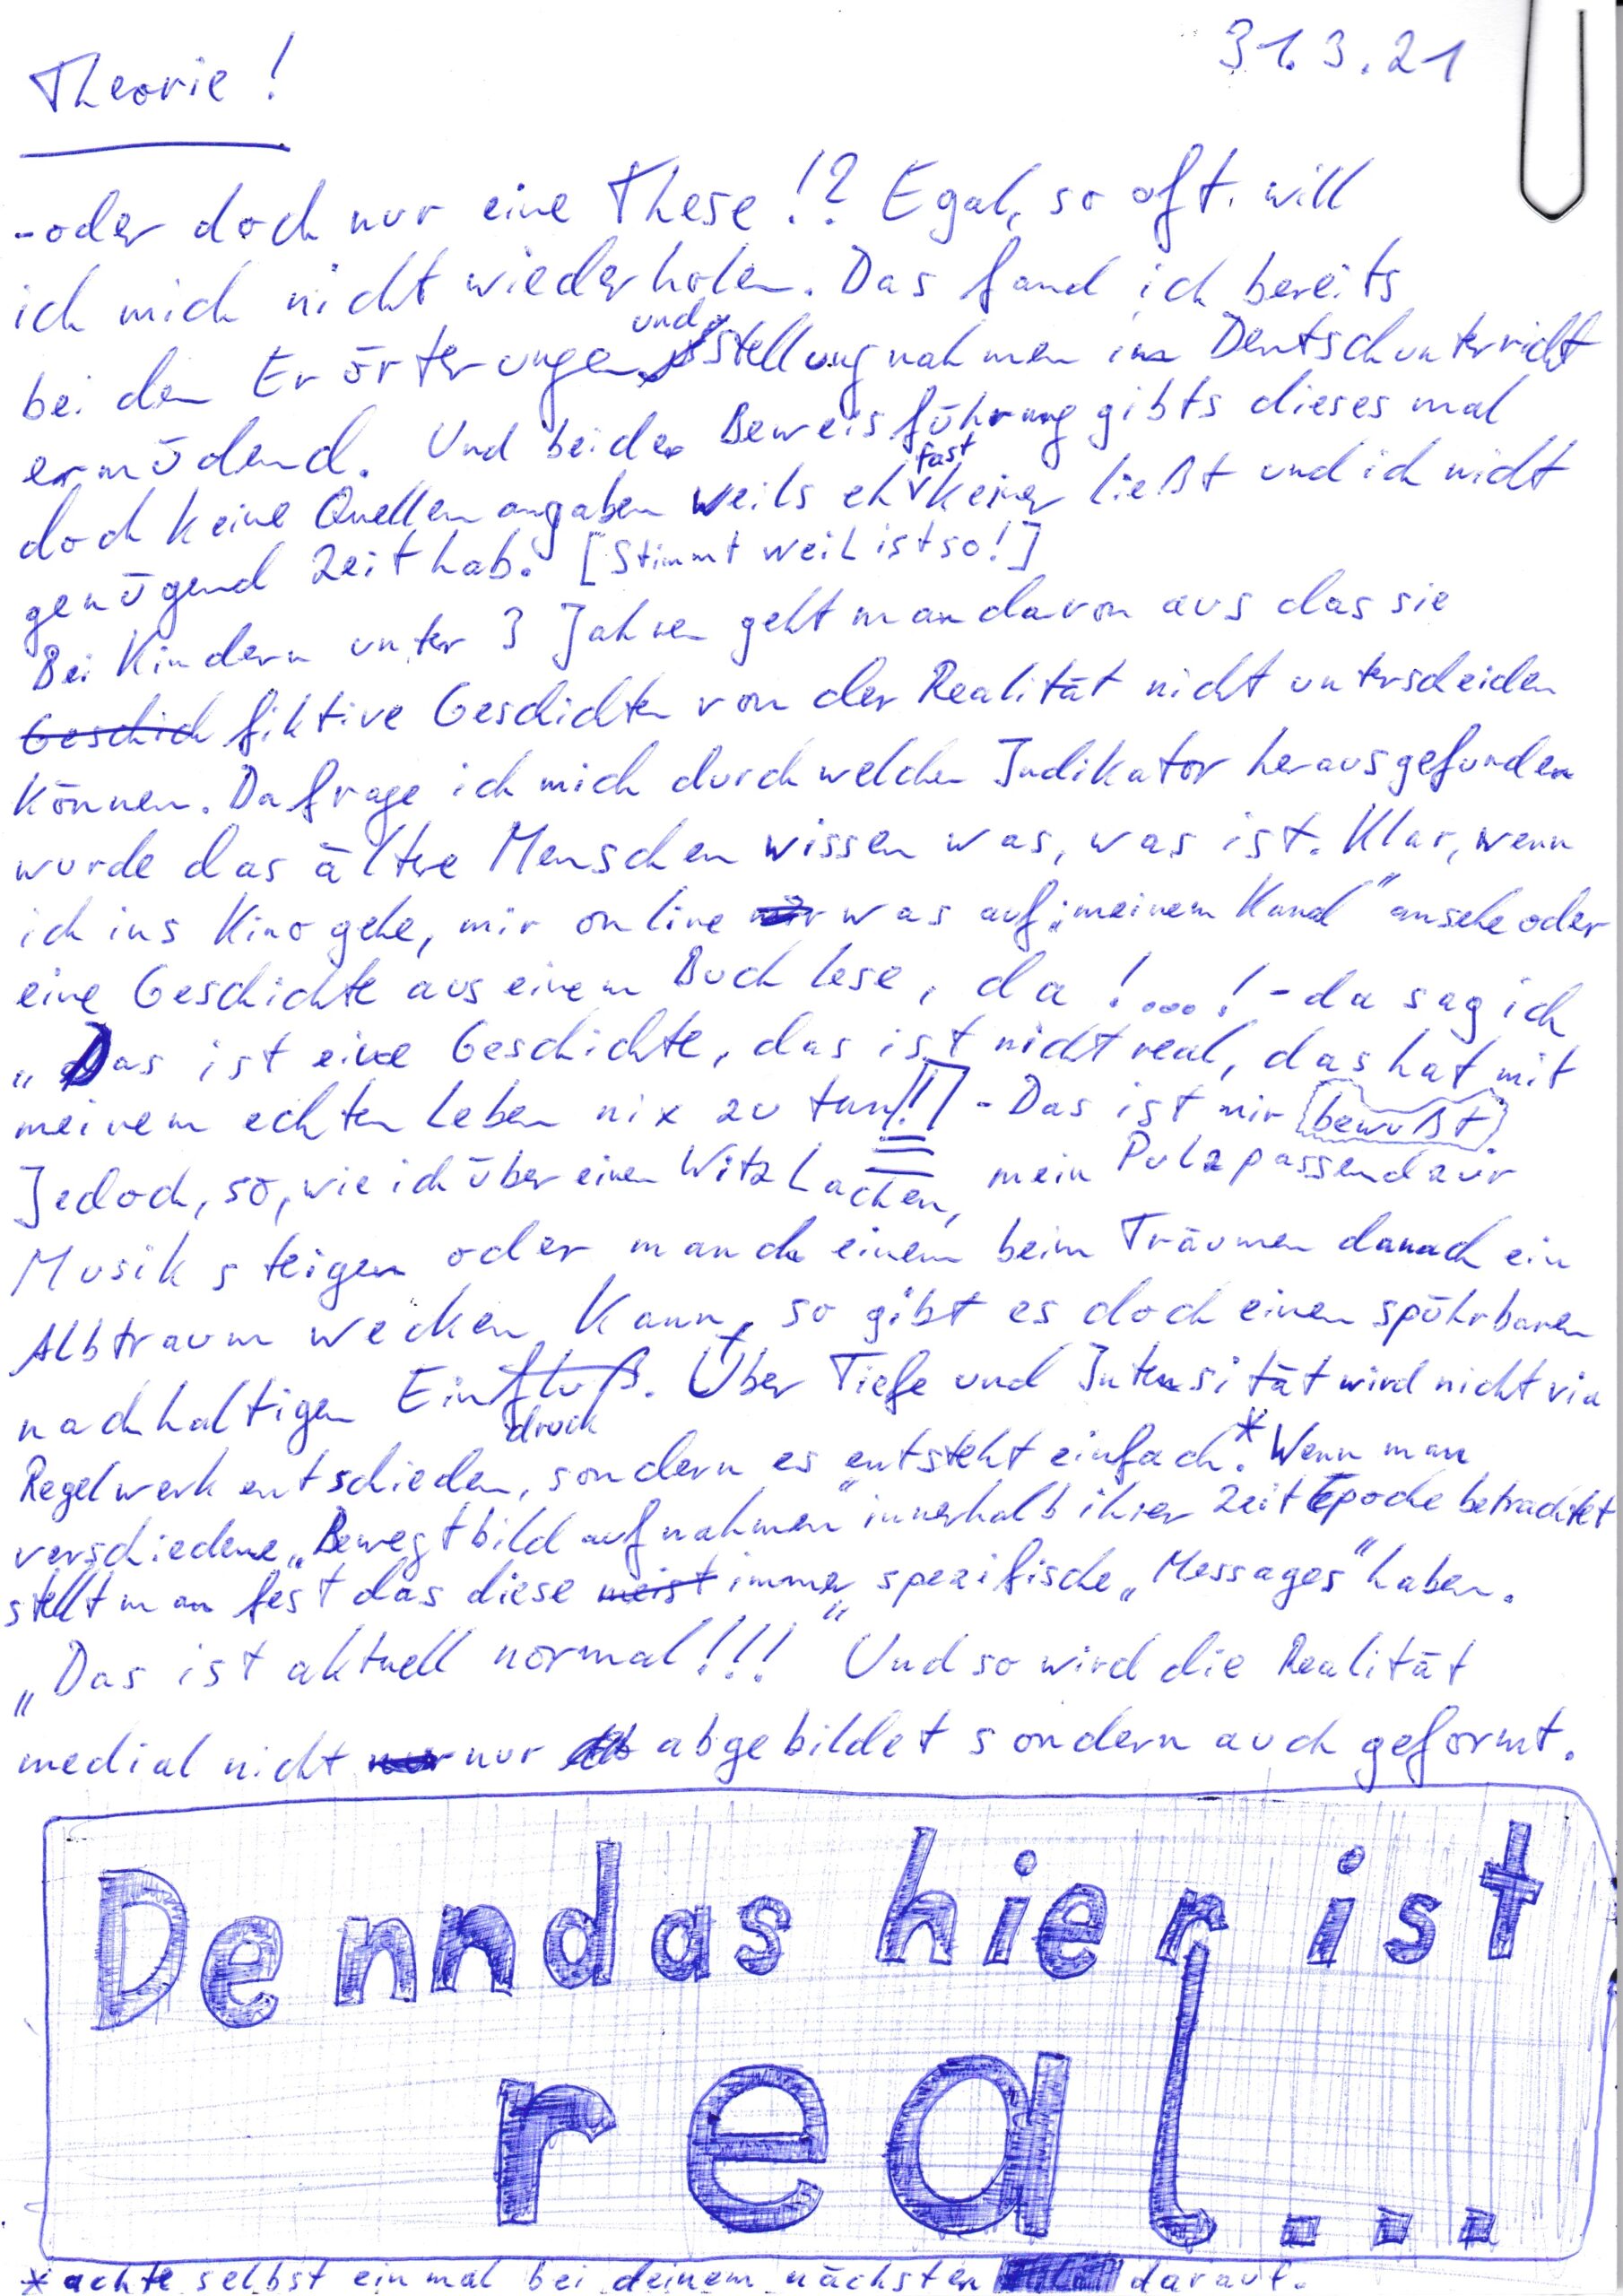 31.3.21
Theorie!
-oder doch nur eine These!? Egal, so oft will
ich mich nicht wiederholen. Das fand ich bereits
bei den Erörterungen und Stellungnahmen im Deutschunterricht
ermüdend. Und bei der Beweisführung gibts dieses mal
doch keine Quellenangaben weils eh fast keiner ließt und ich nicht
genügend Zeit hab. [Stimmt weil ist so!]
Bei Kindern unter 3 Jahren geht man davon aus das sie
Geschich fiktive Geschichten von der Realität nicht unterscheiden
können. Da frage ich mich durch welchen Indikator herausgefunden
wurde das ältere Menschen wissen was, was ist. Klar, wenn
ich ins Kino gehe, mir online was auf „meinem Kanal" ansehe oder
eine Geschichte aus einem Buch lese, da!...! - da sag ich
„Das ist eine Geschichte, das ist nicht real, das hat mit
meinem echten Leben nix zu tun!!" - Das ist mir bewußt
Jedoch, so, wie ich über einen Witz Lachen, mein Pulz passend zur
Musik steigen oder manch einem beim Träumen danach ein
Albtraum wecken kann, so gibt es doch einen spührbaren
nachhaltigen Einfluß. Über Tiefe und Intensität wird nicht via
druck
Regelwerk entschieden, sondern es entsteht einfach.* Wenn man
verschiedene „Bewegtbildaufnahmen" innerhalb ihrer Zeit Epoche betrachtet
stellt man fest das diese meist immer spezifische „Messages" haben.
„Das ist aktuell normal!!!" Und so wird die Realität
medial nicht nur abgebildet sondern auch geformt.
Denn das hier ist
real...
*achte selbst einmal bei deinem nächsten darauf.